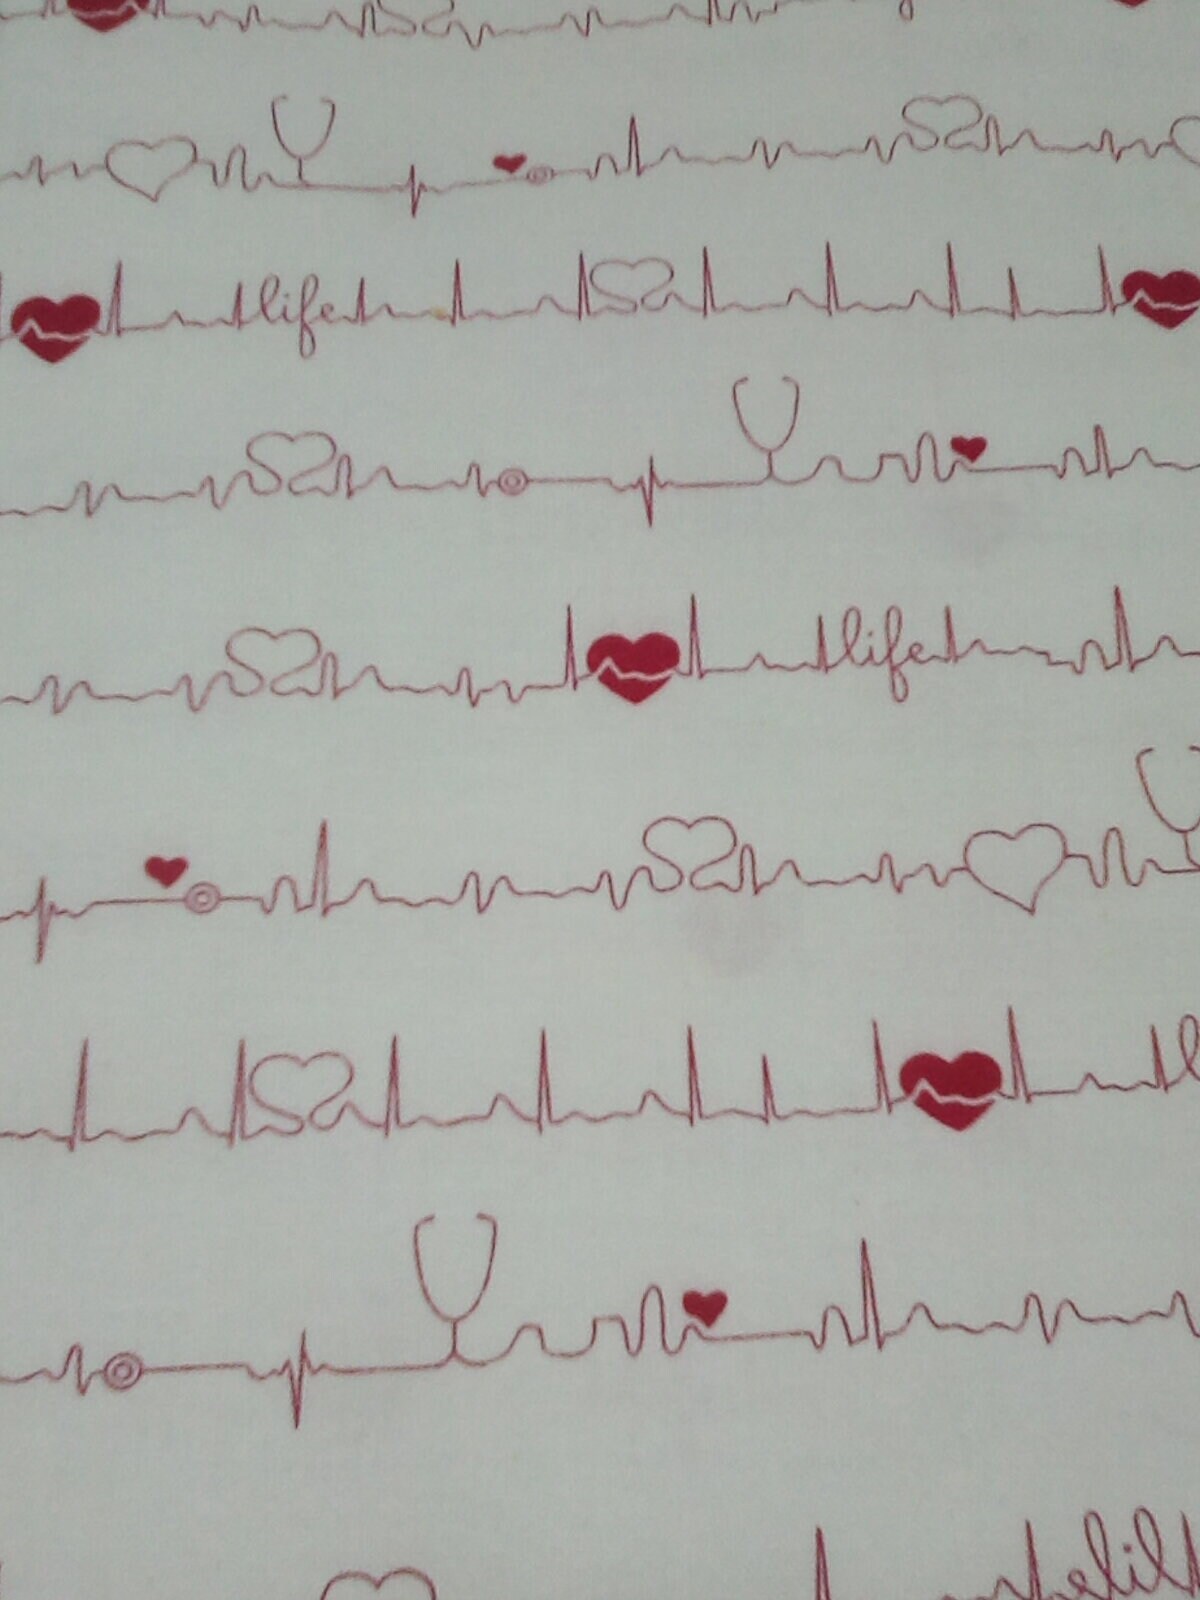 life
life